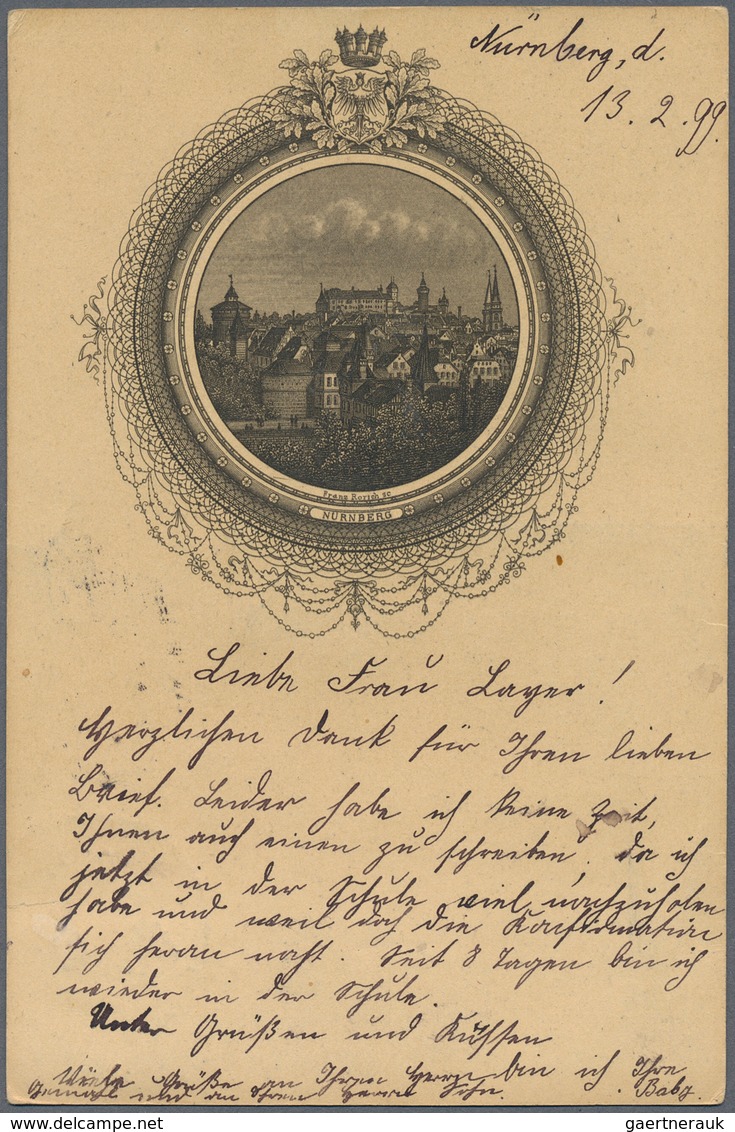 Nürnberg, d.
13. 2. 99.
Franz Rorich sc
NÜRNBERG
Liebe Frau Layer!
Herzlichen Dank für Ihren lieben
Brief. Leider habe ich keine Zeit,
Ihnen auch einen zu schreiben, da ich
jetzt in der Schule viel nachzuholen
habe und weil doch die Konfirmation
sich heran naht. Seit 8 Tagen bin ich
wieder in der Schule.
Unter Grüßen und Küssen
bin ich Ihre
Baby.
Viele Grüße an Ihren Herrn
Gemahl und an Ihren Herrn Sohn.
© gaertnerauk
delcampe.net